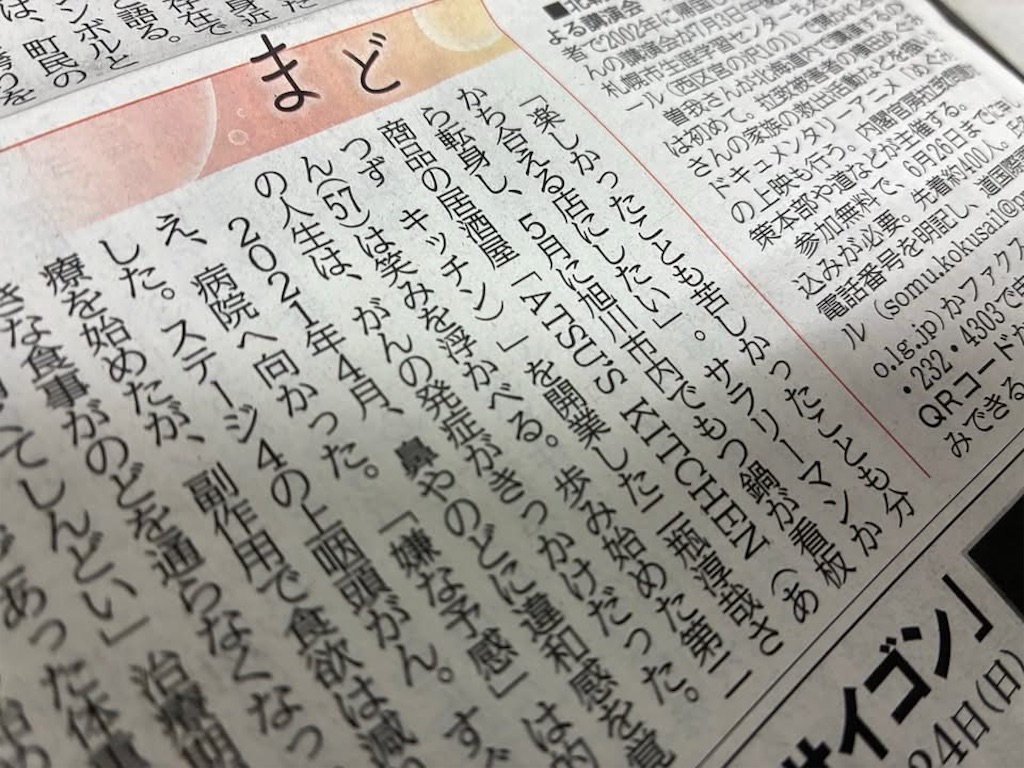 ■北
よる講演会
者で2002年に帰国し
んの講演会が7月3日午
札幌市生涯学習センター
ール(西区宮の沢1の1)で開かれる
曽我さんが北海道内で講演する
は初めて。拉致被害者の横田めぐみ
さんの家族の救出活動などを描い
ドキュメンタリーアニメ「めぐみ
の上映も行う。内閣官房拉致問題
策本部や道などが主催する。
参加無料で、6月26日までに
込みが必要。先着約400人。
電話番号を明記し、道国際
ル(somu.kokusai1@p
o.lg.jp)かファクス
・232・4303で申
QRコードか
みできる
まど
「楽しかったことも苦しかったことも分
かち合える店にしたい」。サラリーマンか
ら転身し、5月に旭川市内でもつ鍋が看板
商品の居酒屋「ATSU'S KITCHEN(あ
つず キッチン)」を開業した二瓶淳哉さ
ん(57)は笑みを浮かべる。歩み始めた第二
の人生は、がんの発症がきっかけだった。
2021年4月、鼻やのどに違和感を覚
え、病院へ向かった。「嫌な予感」は的
した。ステージ4の上咽頭がん。すぐ
療を始めたが、副作用で食欲は減
きな食事がのどを通らなくなっ
てしんどい」治療
あった体重
身近
存在で
と語る。
ンボルと
町民の
は、
サイゴン」
24日(日)